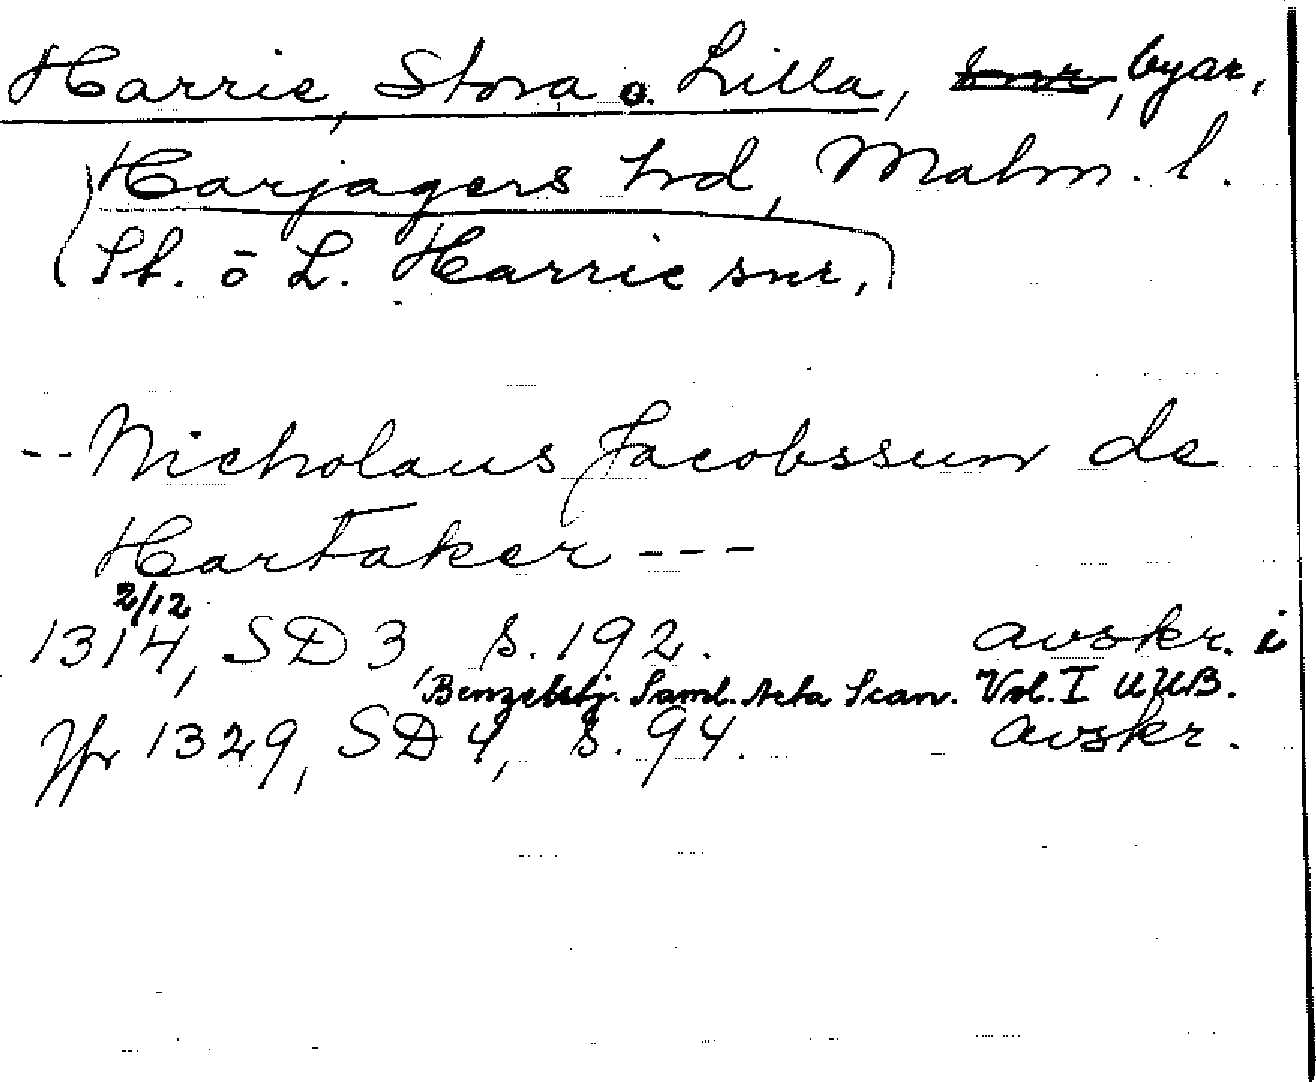 Harrie, Stora o. Lilla, byar,
Harjagers hd, Malm. l.
(St. o L. Harrie snr,)
-- Nicholaus Jacobssun de
Hartaker ---
2/12
1314, SD 3, s. 192. avskr. i
Benzelstj. Saml. Acta Scan. Vol. I UUB.
Jfr 1329, SD 4, s. 94. avskr.